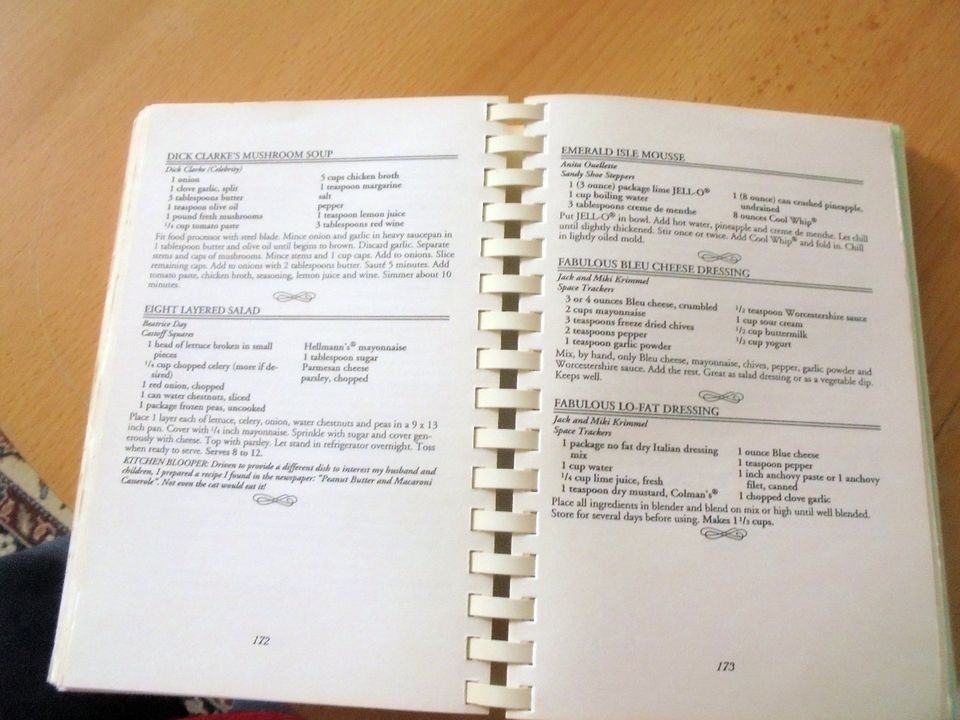 DICK CLARKE'S MUSHROOM SOUP
Dick Clarke (Celebrity)
1 onion
1 clove garlic, split
3 tablespoons butter
1 teaspoon olive oil
1 pound fresh mushrooms
1/4 cup tomato paste
5 cups chicken broth
1 teaspoon margarine
salt
pepper
1 teaspoon lemon juice
3 tablespoons red wine
Fit food processor with steel blade. Mince onion and garlic in heavy saucepan in
1 tablespoon butter and olive oil until begins to brown. Discard garlic. Separate
stems and caps of mushrooms. Mince stems and 1 cup caps. Add to onions. Slice
remaining caps. Add to onions with 2 tablespoons butter. Sauté 5 minutes. Add
tomato paste, chicken broth, seasoning, lemon juice and wine. Simmer about 10
minutes.
EIGHT LAYERED SALAD
Beatrice Day
Castoff Squares
1 head of lettuce broken in small
pieces
1/4 cup chopped celery (more if de-
sired)
1 red onion, chopped
1 can water chestnuts, sliced
1 package frozen peas, uncooked
Hellmann's® mayonnaise
1 tablespoon sugar
Parmesan cheese
parsley, chopped
Place 1 layer each of lettuce, celery, onion, water chestnuts and peas in a 9 x 13
inch pan. Cover with 1/4 inch mayonnaise. Sprinkle with sugar and cover gen-
erously with cheese. Top with parsley. Let stand in refrigerator overnight. Toss
when ready to serve. Serves 8 to 12.
KITCHEN BLOOPER: Driven to provide a different dish to interest my husband and
children, I prepared a recipe I found in the newspaper: "Peanut Butter and Macaroni
Casserole". Not even the cat would eat it!
172
EMERALD ISLE MOUSSE
Anita Ouellette
Sandy Shoe Steppers
1 (3 ounce) package lime JELL-O®
1 cup boiling water
3 tablespoons creme de menthe
1 (8 ounce) can crushed pineapple,
undrained
8 ounces Cool Whip®
Put JELL-O® in bowl. Add hot water, pineapple and creme de menthe. Let chill
until slightly thickened. Stir once or twice. Add Cool Whip® and fold in. Chill
in lightly oiled mold.
FABULOUS BLEU CHEESE DRESSING
Jack and Miki Krimmel
Space Trackers
3 or 4 ounces Bleu cheese, crumbled
2 cups mayonnaise
3 teaspoons freeze dried chives
2 teaspoons pepper
1 teaspoon garlic powder
1/2 teaspoon Worcestershire sauce
1 cup sour cream
1/2 cup buttermilk
1/2 cup yogurt
Mix, by hand, only Bleu cheese, mayonnaise, chives, pepper, garlic powder and
Worcestershire sauce. Add the rest. Great as salad dressing or as a vegetable dip.
Keeps well.
FABULOUS LO-FAT DRESSING
Jack and Miki Krimmel
Space Trackers
1 package no fat dry Italian dressing
mix
1 cup water
1/4 cup lime juice, fresh
1 teaspoon dry mustard, Colman's®
1 ounce Blue cheese
1 teaspoon pepper
1 inch anchovy paste or 1 anchovy
filet, canned
1 chopped clove garlic
Place all ingredients in blender and blend on mix or high until well blended.
Store for several days before using. Makes 1 1/3 cups.
173